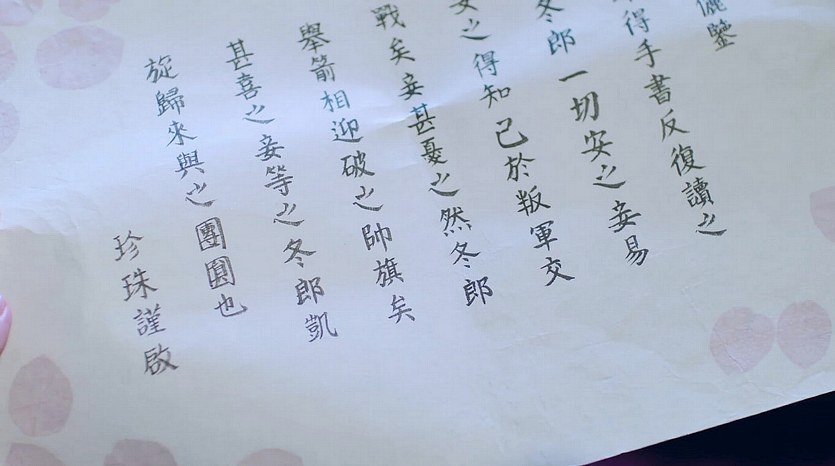 鑒
得手書反復讀之
冬郎一切安之妾易
安之得知己於叛軍交
戰矣妾甚憂之然冬郎
舉箭相迎破之帥旗矣
甚喜之妾等之冬郎凱
旋歸來與之團圓也
珍珠謹啟